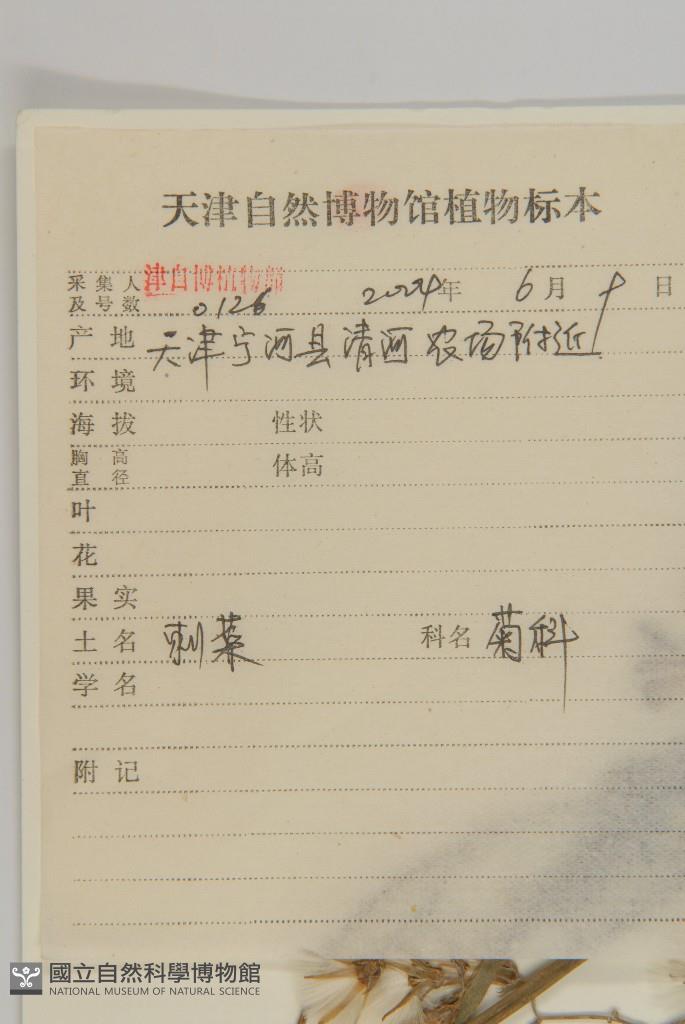 天津自然博物馆植物标本
采集人 津自博植物部
及号数 0126 2004年 6月 9日
产地 天津宁河县清河农场附近
环境
海拔 性状
胸高 体高
直径
叶
花
果实
土名 刺菜 科名 菊科
学名
附记
國立自然科學博物館
NATIONAL MUSEUM OF NATURAL SCIENCE